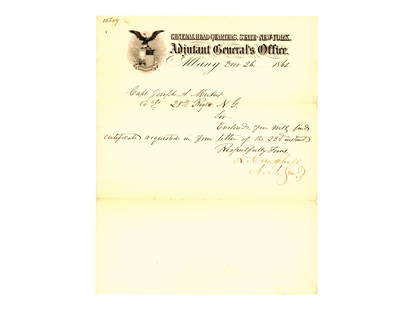 General Head Quarters, State of New-York,
Adjutant General's Office,
Albany Dec 26 186
Capt Joseph A
28th Regt N. G.
Sir
Enclosed you will find
certificate requested in your letter of the 23d instant
Respectfully Yours